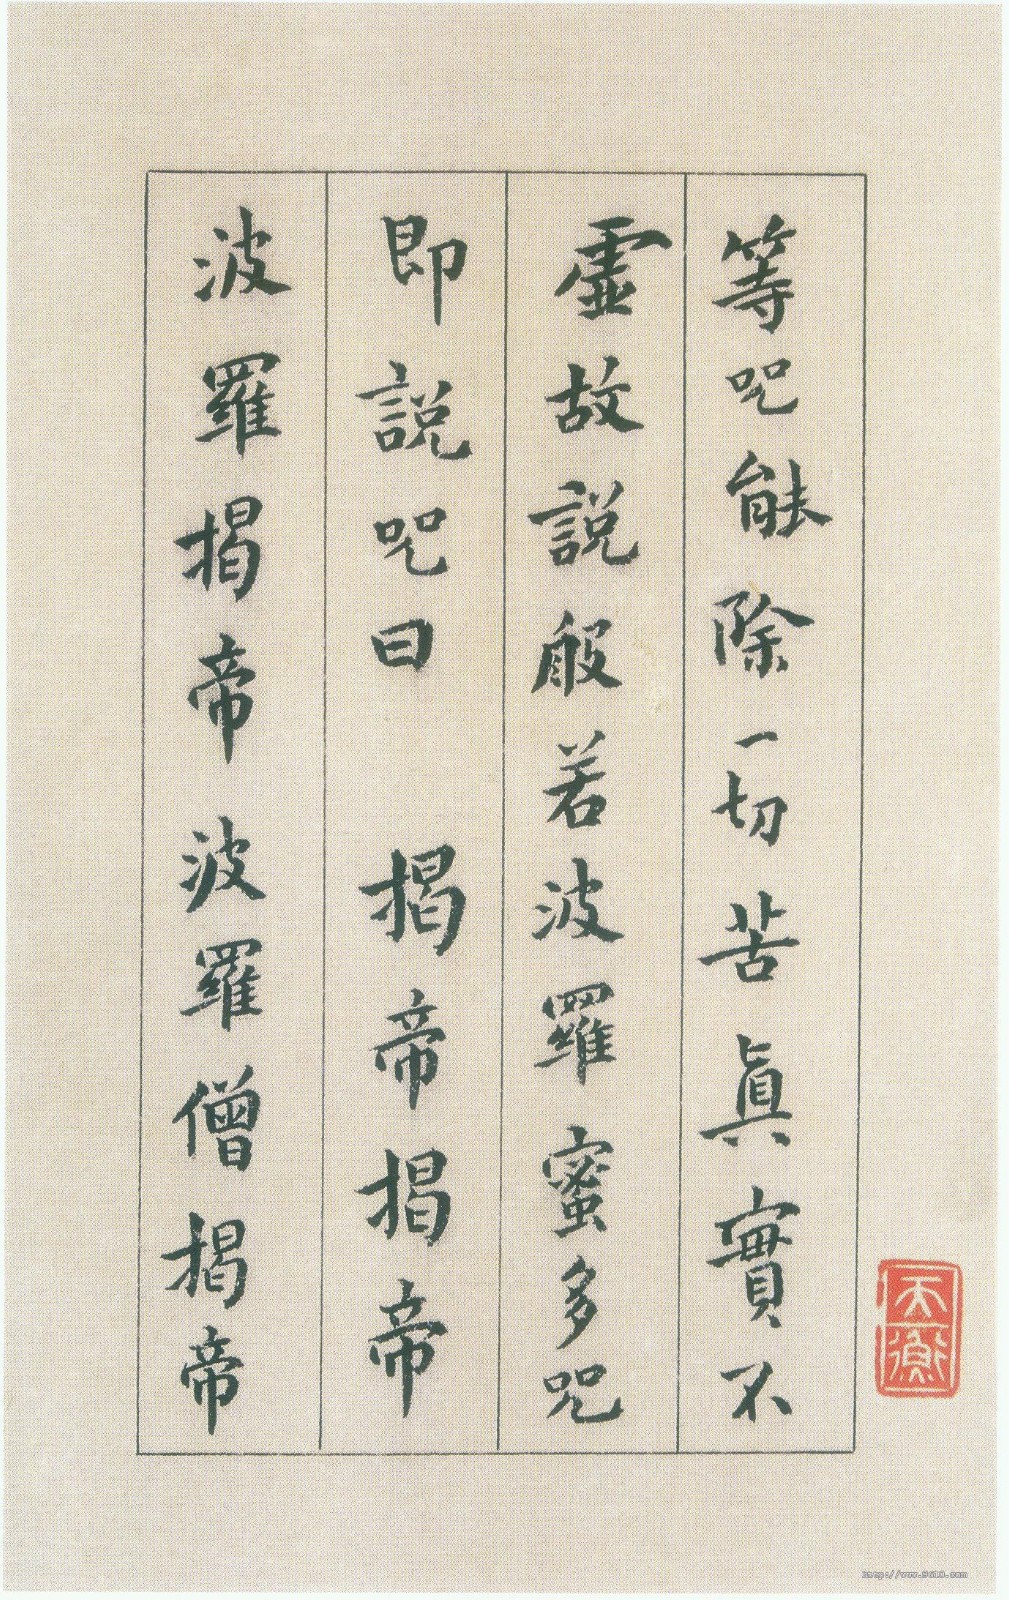 等咒能除一切苦真實不
虛故說般若波羅蜜多咒
即說咒曰　揭帝揭帝
波羅揭帝 波羅僧揭帝
天衡
http://www.9610.com